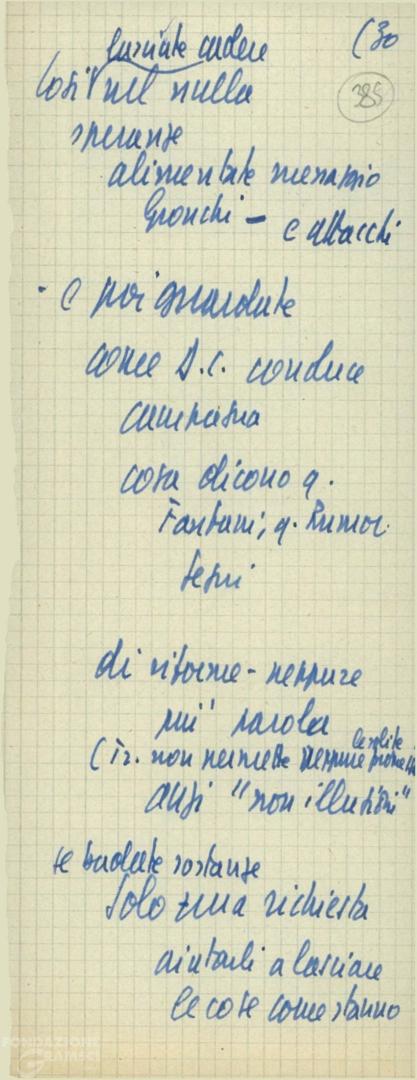 lasciate cadere (30
385
Così nel nulla
speranze
alimentate messaggio
Gronchi - e attacchi
- e poi guardate
come D.C. conduce
campagna
cosa dicono q.
Fanfani, q. Rumor
Segni
di riforme - neppure
più parola
le solite
(Tr. non permette neppure promesse
anzi "non illudersi"
se badate sostanze
solo una richiesta
aiutarli a lasciare
le cose come stanno
FONDAZIONE
GRAMSCI